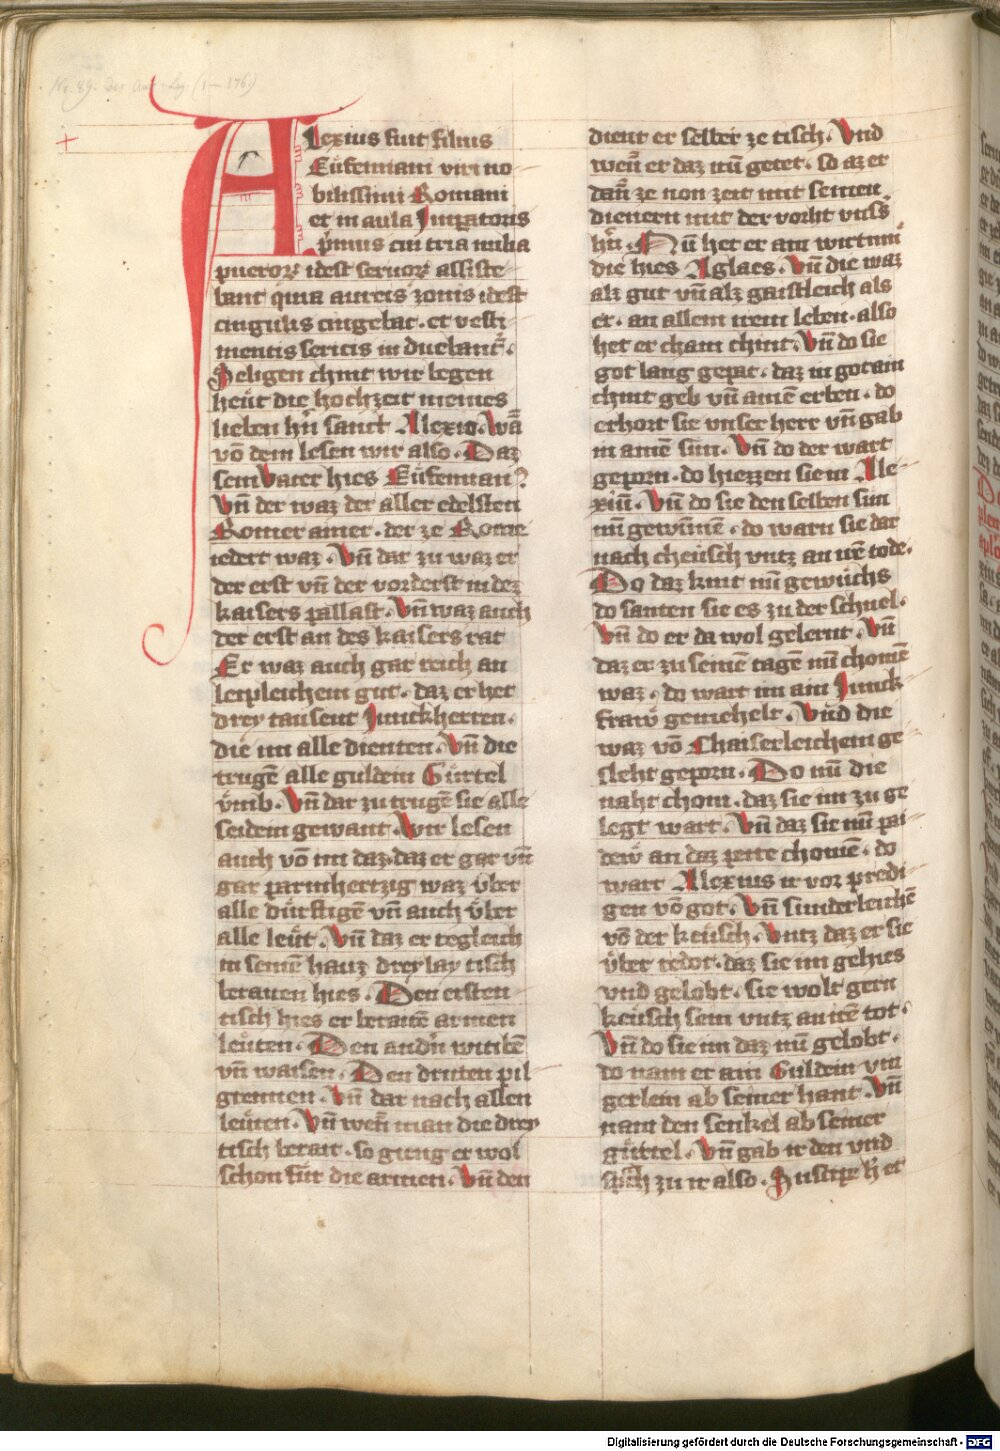 Nr. 89. der
Alexius fuit filius
Eüfemiani viri no
bilissimi Romani
et in aula Imperatoris
p̄mus cui tria milia
pueroꝝ idest seruoꝝ assiste
bant qui aureis zonis idest
cingulis cingebāt. et vesti
mentis sericis induebantr̄.
Seligen chint wir legen
heüt die hochzeit meines
lieben hr̄n sanct Alexio. Wā
vō dem lesen wir also. Daz
sein vater hies Eüfemian?
Vn̄ der waz der aller edelsten
Romer ainer. der ze Rome
iedert waz. Vn̄ dar zu waz er
der erst vn̄ der vorderst in dez
kaisers pallast. Vn̄ waz auch
der erst an des kaisers rat
Er waz auch gar reich an
leipleichem gut. daz er het
drey tausent Junckherren.
die im alle dienten. Vn̄ die
trugē alle guldein Gürtel
ümb. Vn̄ dar zu trugē sie alle
seidein gewant. Wir lesen
auch vō im daz. daz er gar vn̄
gar parmhertzig waz über
alle dürftigē vn̄ auch über
alle leüt. Vn̄ daz er tegleich
in seinē hauz dreylay tisch
beraiten hies. Den ersten
tisch hies er beraitē armen
leüten. Den andn̄ witibē
vn̄ waisen. Den dritten pil
greimen. Vn̄ dar nach allen
leüten. Vn̄ wen̄ man die drey
tisch berait. so gieng er wol
schon für die armen. Vn̄ den
dient er selber ze tisch. Vnd
wen̄ er daz nū getet. so az er
dan̄ ze non zeit mit seinen
dienern mit der vorht vnss̄
hr̄n. Nū het er ain wirtinn
die hies Aglaes. Vn̄ die waz
alz gut vn̄ alz gaistleich als
er. an allem irem leben. also
het er chain chint. Vn̄ do sie
got lang gepat. daz in got ain
chint geb vn̄ ainē erben. do
erhort sie vnser herr vn̄ gab
in ainē sun. Vn̄ do der wart
geporn. do hiezzen sie in Ale
xiū. Vn̄ do sie den selben sun
nū gewūnē. do warn sie dar
nach cheüsch vntz an irē tode.
Do daz kint nū gewüchs
do santen sie es zu der schuel.
Vn̄ do er da wol gelernt. Vn̄
daz er zu seinē tagē nū chomē
waz. do wart im ain Junck
fraw gemehelt. Vnd die
waz vō Chaiserleichem ge
sleht geporn. Do nū die
naht chom. daz sie im zu ge
legt wart. Vn̄ daz sie nū pai
dew an daz pette chomē. do
wart Alexius ir vor predi
gen vō got. Vn̄ sunderleichē
vō der keüsch. Vntz daz er sie
über redot. daz sie im gehies
vnd gelobt. sie wolt gern
keüsch sein vntz an irē tot.
Vn̄ do sie im daz nū gelobt.
do nam er ain Guldein vin
gerlein ab seiner hant. Vn̄
nam den senkel ab seiner
gürtel. Vn̄ gab ir den vnd
sprach zu ir also. Suscipe h̄ et
Digitalisierung gefördert durch die Deutsche Forschungsgemeinschaft - DFG